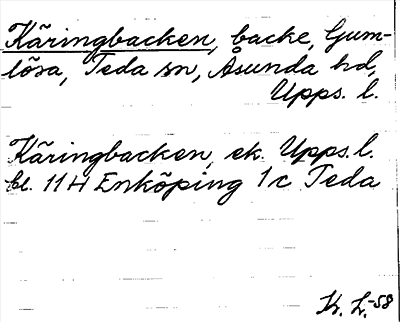 Käringbacken, backe, Gum-
lösa, Teda sn, Åsunda hd,
Upps. l.
Käringbacken, ek. Upps. l.
bl. 11 H Enköping 1 c Teda
Kr. L.-58